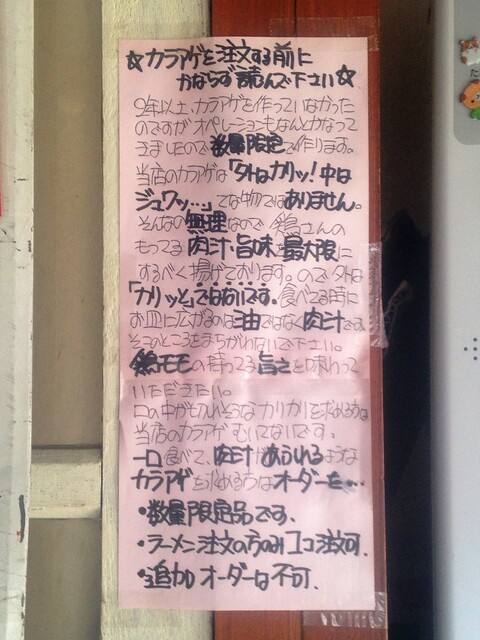 ☆カラアゲを注文する前に
かならず読んで下さい☆
9年以上、カラアゲを作っていなかった
のですがオペレーションもなんとかなって
きましたので数量限定で作ります。
当店のカラアゲは「外はカリッ!中は
ジュワッ…」てな物ではありません。
そんなの無理なので鶏さんの
もってる肉汁・旨味を最大限に
するべく揚げております。ので外は
「カリッと」ではないです。食べてる時に
お皿に広がるのは油ではなく肉汁です。
そこのところをまちがわないで下さい。
鶏モモの持ってる旨さを味わって
いただきたい。
口の中が切れそうなカリカリを求める方は
当店のカラアゲむいてないです。
一口食べて、肉汁があふれるような
カラアゲを求める方はオーダーを…
・数量限定品です、
・ラーメン注文の方のみ1コ注文可、
・追加オーダーは不可、